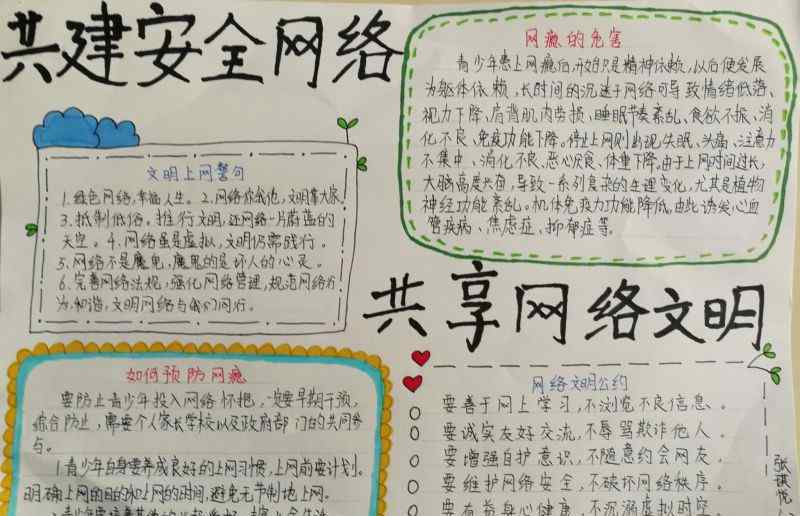 共建安全网络
文明上网警句
1.绿色网络,幸福人生。2.网络你我他,文明靠大家
3.抵制低俗。推行文明,还网络一片蔚蓝的
天空。4.网络虽是虚拟,文明仍需践行。
5.网络不是魔鬼,魔鬼的是坏人的心灵。
6.完善网络法规,强化网络管理,规范网络行
为,和谐,文明网络与我们同行。
网瘾的危害
青少年患上网瘾后,开始只是精神依赖,以后便发展
为躯体依赖,长时间的沉迷于网络可导致情绪低落、
视力下降、肩背肌肉劳损、睡眠节奏紊乱、食欲不振、消
化不良、免疫功能下降。停止上网则出现失眠、头痛、注意力
不集中、消化不良、恶心厌食、体重下降。由于上网时间过长,
大脑高度兴奋,导致一系列复杂的生理变化,尤其是植物
神经功能紊乱。机体免疫力功能降低。由此诱发心血
管疾病、焦虑症、抑郁症等。
共享网络文明
如何预防网瘾
要防止青少年投入网络怀抱,一定要早期干预,
综合防止,需要个人家长学校以及政府部门的共同参
与。
1青少年自身要养成良好的上网习惯,上网前要计划。
明确上网的目的和上网的时间,避免无节制地上网。
网络文明公约
要善于网上学习,不浏览不良信息。
要诚实友好交流,不辱骂欺诈他人。
要增强自护意识,不随意约会网友。
要维护网络安全,不破坏网络秩序。
要有益身心健康,不沉溺虚拟时空。